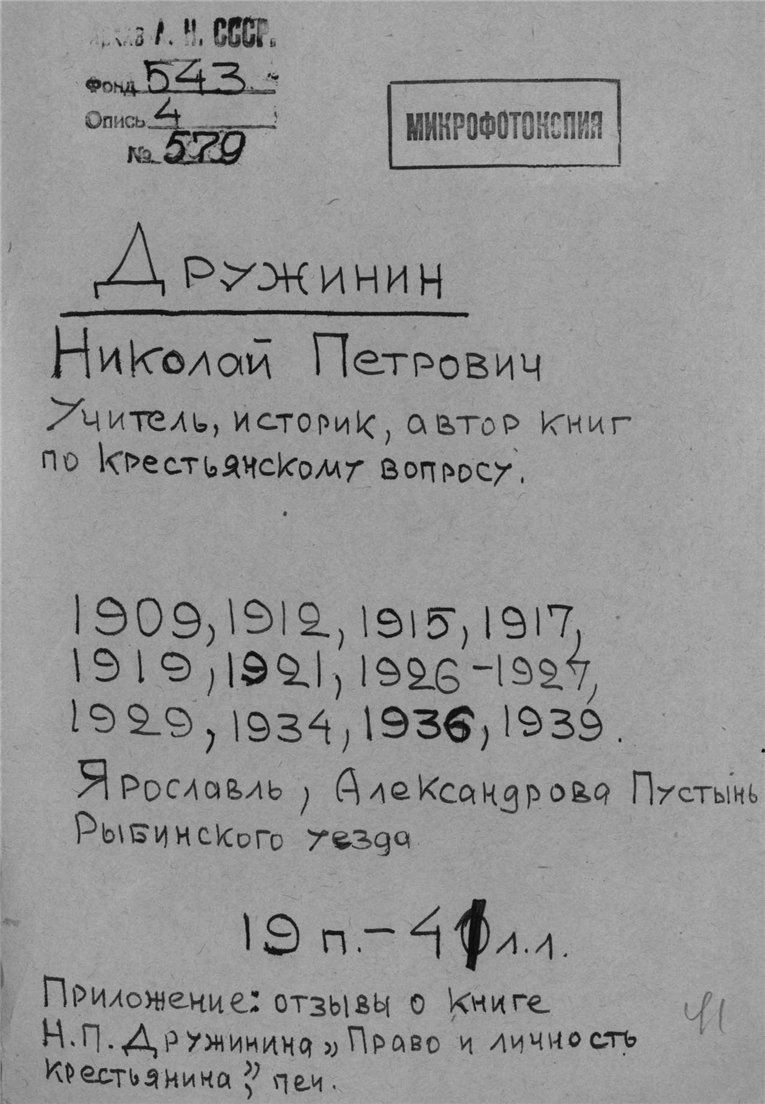 Архив А. Н. СССР.
Фонд 543
Опись 4
№ 579
МИКРОФОТОКОПИЯ
Дружинин
Николай Петрович
Учитель, историк, автор книг
по крестьянскому вопросу.
1909, 1912, 1915, 1917,
1919, 1921, 1926-1927,
1929, 1934, 1936, 1939.
Ярославль, Александрова Пустынь
Рыбинского уезда
19 п. - 41 л.л.
Приложение: отзывы о книге
41
Н.П. Дружинина „Право и личность
крестьянина", печ.